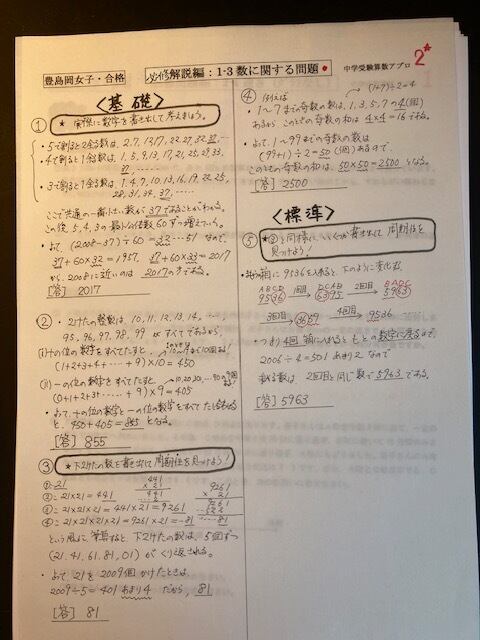 豊島岡女子・合格
必修解説編：1-3 数に関する問題
中学受験算数アプロ
2*
<基礎>
① ★ 実際に数字を書き出して考えましょう。
・5で割ると2余る数は、2,7,12,17,22,27,32,37,…
・4で割ると1余る数は、1,5,9,13,17,21,25,29,33,
37,……
・3で割ると1余る数は、1,4,7,10,13,16,19,22,25,
28,31,34,37,……
ここで共通の一番小さい数が37であることがわかる。
この後、5,4,3の最小公倍数60ずつ増えていく。
・よって、(2008-37)÷60=32…51 なので、
37+60×32=1957, 37+60×33=2017
から、2008に近いのは 2017の方である。
[答] 2017
② ・2けたの整数は、10,11,12,13,14,……
95,96,97,98,99 がすべてであるから、
(i) 十の位の数字をすべてたすと、
(1+2+3+4……+9)×10=450
(ii) 一の位の数字をすべてたすと、
(0+1+2+3+……+9)×9=405
・よって、十の位の数字と一の位の数字をすべてたし合わせる
と、450+405=855 となる。
[答] 855
③ ★下2けたの数を書き出して周期性を見つけよう!
①:21
②:21×21=441
③:21×21×21=441×21=9261
④:21×21×21×21=9261×21=…81
441
×21
441
9261
×21
9261
81
という風に筆算すると 下2けたの数は、5個ずつ
(21,41,61,81,01) がくり返される。
・よって、21を2009個かけたときは、
2009÷5=401 あまり4 だから、81
[答] 81
④ 例えば
(1+7)÷2=4
1〜7までの奇数の数は、1,3,5,7の4(個)
あるから このときの奇数の和は 4×4=16である。
・よって、1〜99までの奇数の数は
(99+1)÷2=50 (個)あるので、
このときの奇数の和は、50×50=2500 となる。
[答] 2500
<標準>
⑤ ★③と同様に、いくつか書き出して周期性を
見つけよう!
9536を入れると、下のように変化する。
ABCD
9536
1回目
DCAB
6395
2回目
BADC
5963
3回目
3659
4回目
9536
・つまり4回 箱に入れると もとの数字に戻るので、
2006÷4=501 あまり2 なので
数は 2回目と同じ数で5963である。
[答] 5963